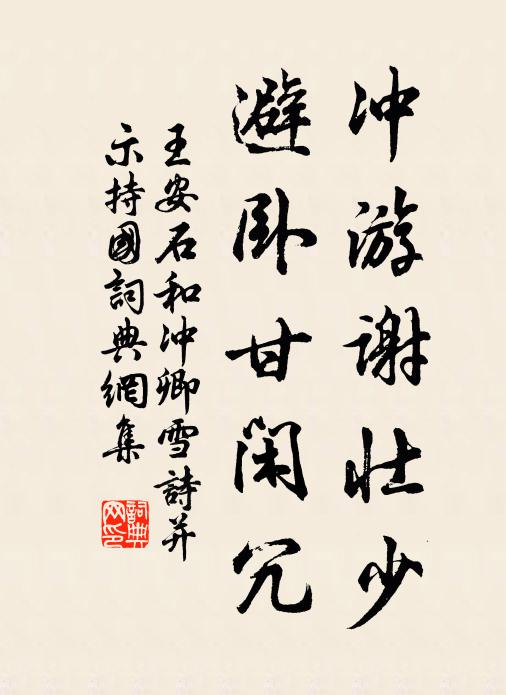 冲游谢壮少
避卧甘闲冗
王安石和冲卿雪詩并
示持國詞典網集
詞典網印